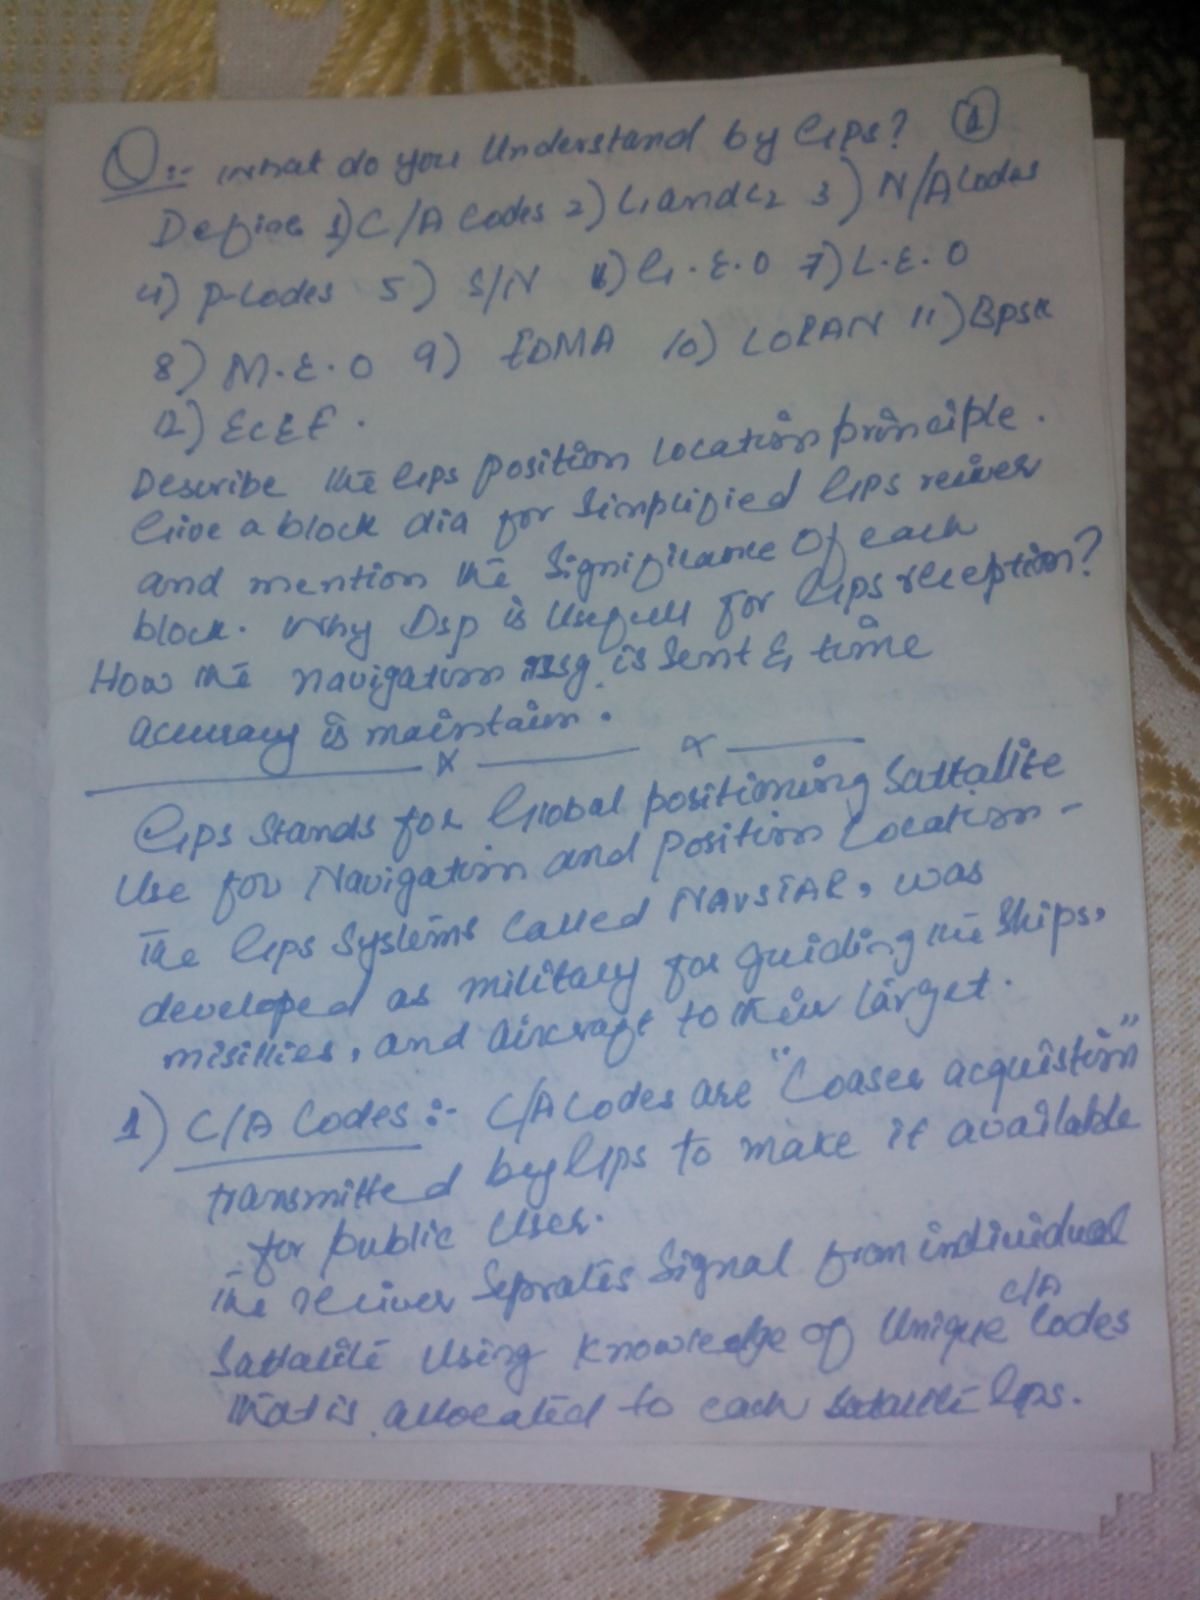 Q:- What do you Understand by GPS? (1)
Define 1) C/A Codes 2) L1 and L2 3) N/A Codes
4) P-Codes 5) S/N 6) G.E.O 7) L.E.O
8) M.E.O 9) FDMA 10) LORAN 11) BPSK
12) ECEF.
Describe the GPS position location principle.
Give a block dia for Simplified GPS reciver
and mention the Significance of each
block. Why DSP is Usefull for GPS reception?
How the navigation msg. is Sent & time
accuracy is maintain.
x x
GPS Stands for Global positioning Sattalite
Use for Navigation and Position Location-
The GPS Systems Called NAVSTAR, was
developed as military for guiding the Ships,
misillies, and aircraft to their target.
1) C/A Codes:- C/A Codes are "Coaser acquistion"
transmitted by GPS to make it available
for public User.
The reciver Seprates Signal from individual
C/A
Sattalite Using knowledge of Unique Codes
that is allocated to each satallite GPS.